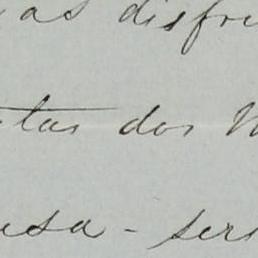 as disfru
tas dos
esa - ser